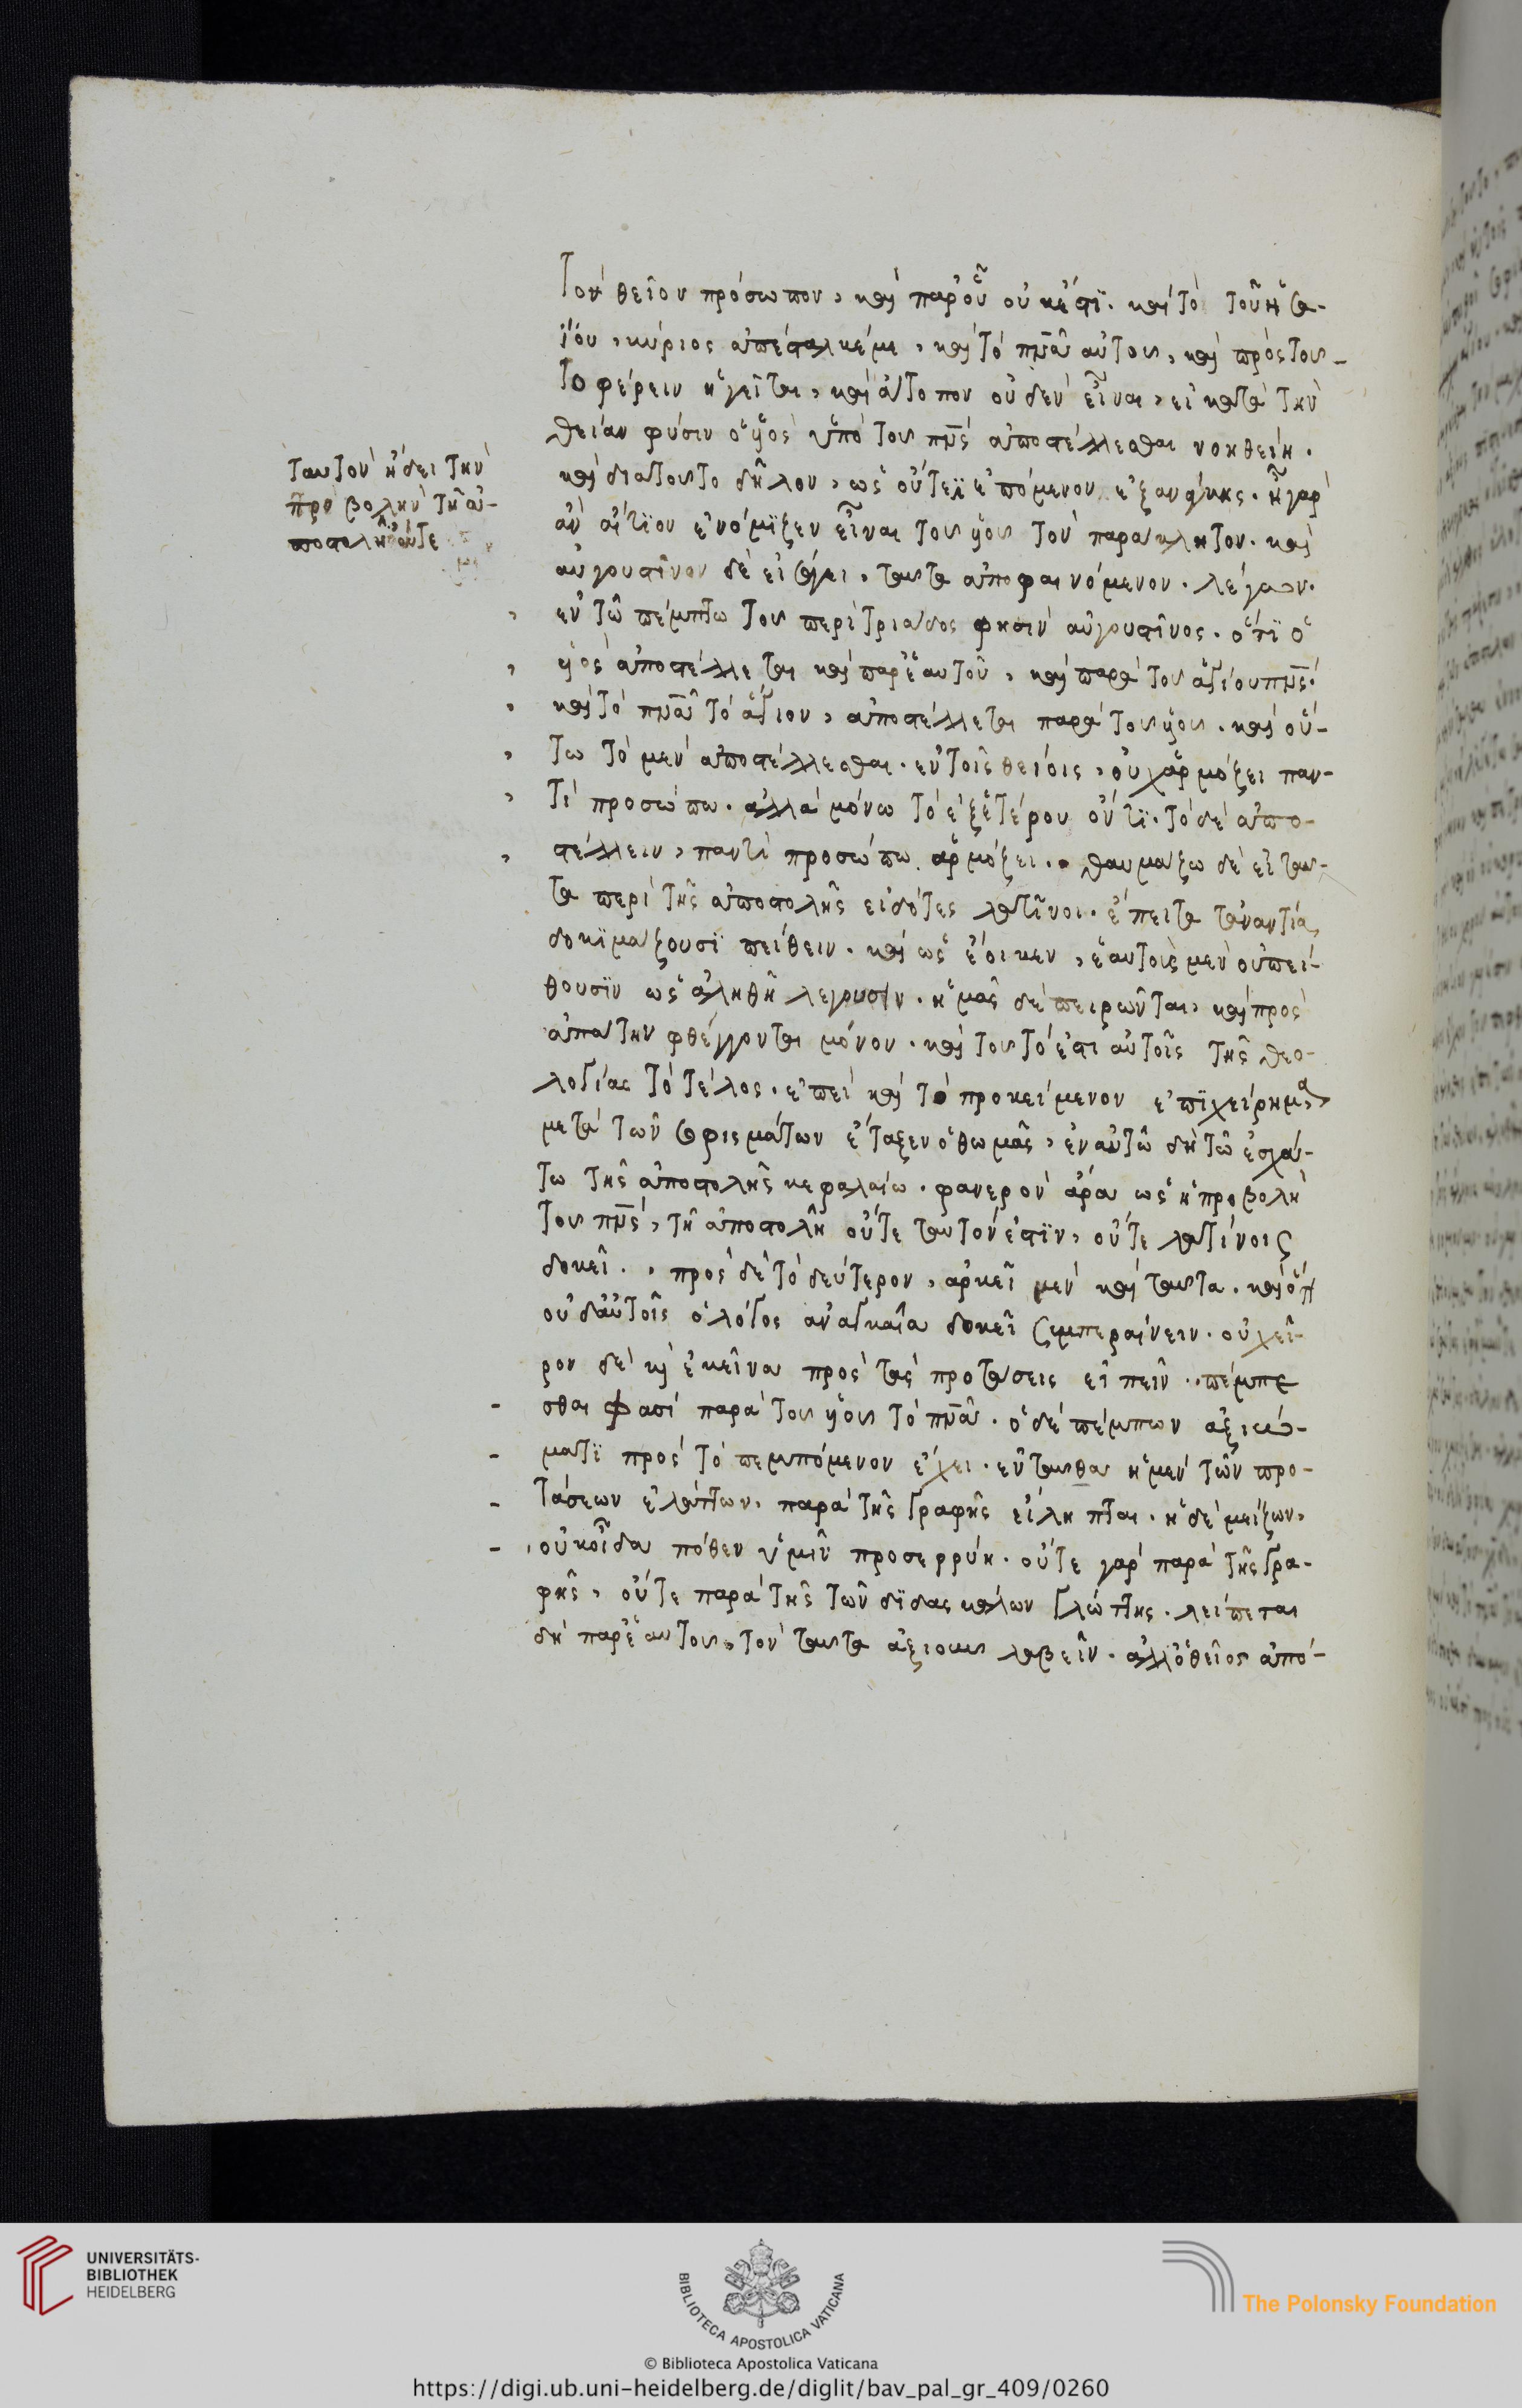 τὸν θεῖον πρόσωπον, καὶ παρ' οὗ οὐκ ἔστι. καὶ τὸ τοῦ ἡσα-
ΐου, κύριος ἀπέσταλκέ με, καὶ τὸ πν̅α αὐτοῦ, καὶ πρὸς τοῦ-
το φέρειν ἡγεῖται, καὶ ἄτοπον οὐδὲν εἶναι, εἰ κατὰ τὴν
θείαν φύσιν ὁ υἱὸς ὑπὸ τοῦ πν̅ς ἀποστέλλεσθαι νοηθείη.
καὶ διὰ τοῦτο δῆλον, ὡς οὔτε ἑπόμενον ἐξανάγκης. ἢ γὰρ
ἂν αἴτιον ἐνόμιζεν εἶναι τοῦ υἱοῦ τὸν παράκλητον. καὶ
αὐγουστῖνον δὲ εἰσάγει, ταῦτα ἀποφαινόμενον. λέγων.
ἐν τῶ πέμπτω τοῦ περὶ τριάδος φησὶν αὐγουστῖνος. ὅτι ὁ
υἱὸς ἀποστέλλεται καὶ παρ' ἑαυτοῦ, καὶ παρὰ τοῦ ἁγίου πν̅ς.
καὶ τὸ πν̅α τὸ ἅγιον, ἀποστέλλεται παρὰ τοῦ υἱοῦ. καὶ οὕ-
τω τὸ μὲν ἀποστέλλεσθαι. ἐν τοῖς θείοις, οὐχ ἁρμόζει παν-
τὶ προσώπω. ἀλλὰ μόνω τὸ ἐξ ἑτέρου ὄντι. τὸ δὲ ἀπο-
στέλλειν, παντὶ προσώπω ἁρμόζει. θαυμάζω δὲ εἰ ταῦ-
τα περὶ τῆς ἀποστολῆς εἰδότες λατῖνοι. ἔπειτα τἀναντία
δοκιμάζουσι πείθειν. καὶ ὡς ἔοικεν, ἑαυτοὺς μὲν οὐ πεί-
θουσιν ὡς ἀληθῆ λέγουσιν. ἡμᾶς δὲ πειρῶνται, καὶ πρὸς
ἀπάτην φθέγγονται μόνον. καὶ τοῦτό ἐστι αὐτοῖς τῆς θεο-
λογίας τὸ τέλος. ἐπεὶ καὶ τὸ προκείμενον ἐπιχείρημα,
μετὰ τῶν σοφισμάτων ἔταξεν ὁ θωμᾶς, ἐν αὐτῶ δὴ τῶ ἐσχά-
τω τῆς ἀποστολῆς κεφαλαίω. φανερὸν ἄρα ὡς ἡ προβολὴ
τοῦ πν̅ς, τῆ ἀποστολῆ οὔτε ταυτόν ἐστιν, οὔτε λατίνοις
δοκεῖ. πρὸς δὲ τὸ δεύτερον, ἀρκεῖ μὲν καὶ ταῦτα. καὶ ὅτι
οὐδ' αὐτοῖς ὁ λόγος ἀναγκαῖα δοκεῖ συμπεραίνειν. οὐ χεῖ-
ρον δὲ κἀκεῖνα πρὸς τὰς προτάσεις εἰπεῖν. πέμπε
σθαι φασὶ παρὰ τοῦ υἱοῦ τὸ πν̅α. ὁ δὲ πέμπων ἀξιώ-
ματι πρὸς τὸ πεμπόμενον ἔχει. ἐνταῦθα ἡ μὲν τῶν προ-
τάσεων ἐλάττων, παρὰ τῆς γραφῆς εἴληπται. ἡ δὲ μείζων,
οὐκ οἶδα πόθεν ὑμῖν προσερρύη. οὔτε γὰρ παρὰ τῆς γρα-
φῆς, οὔτε παρὰ τῆς τῶν διδασκάλων γλώττης. λείπεται
δὴ παρ' ἑαυτοῦ, τὸν ταῦτα ἀξιοῦν λαβεῖν. ἀλλ' ὁ θεῖος ἀπό-
ταυτὸν ᾔδει τὴν
προβολὴν τῆ ἀ-
ποστολῆ οὔτε
UNIVERSITÄTS-
BIBLIOTHEK
HEIDELBERG
BIBLIOTECA APOSTOLICA VATICANA
The Polonsky Foundation
© Biblioteca Apostolica Vaticana
https://digi.ub.uni-heidelberg.de/diglit/bav_pal_gr_409/0260